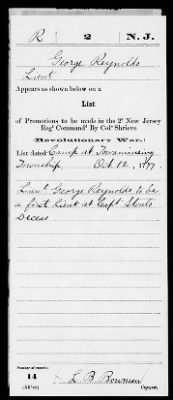 R 2 N.J.
George Reynolds
Lieut
Appears as shown below on a
List
of Promotions to be made in the 2d New Jersey
Regt Commandd By Colo Shrieve
(Revolutionary War.)
List dated Camp at Towaminsing
Township, Oct 12, 1777.
Lieut George Reynolds to be
a first Lieut at Capt Stouts
Decess
Number of record:
14
L. B. Bowman
Copyist.